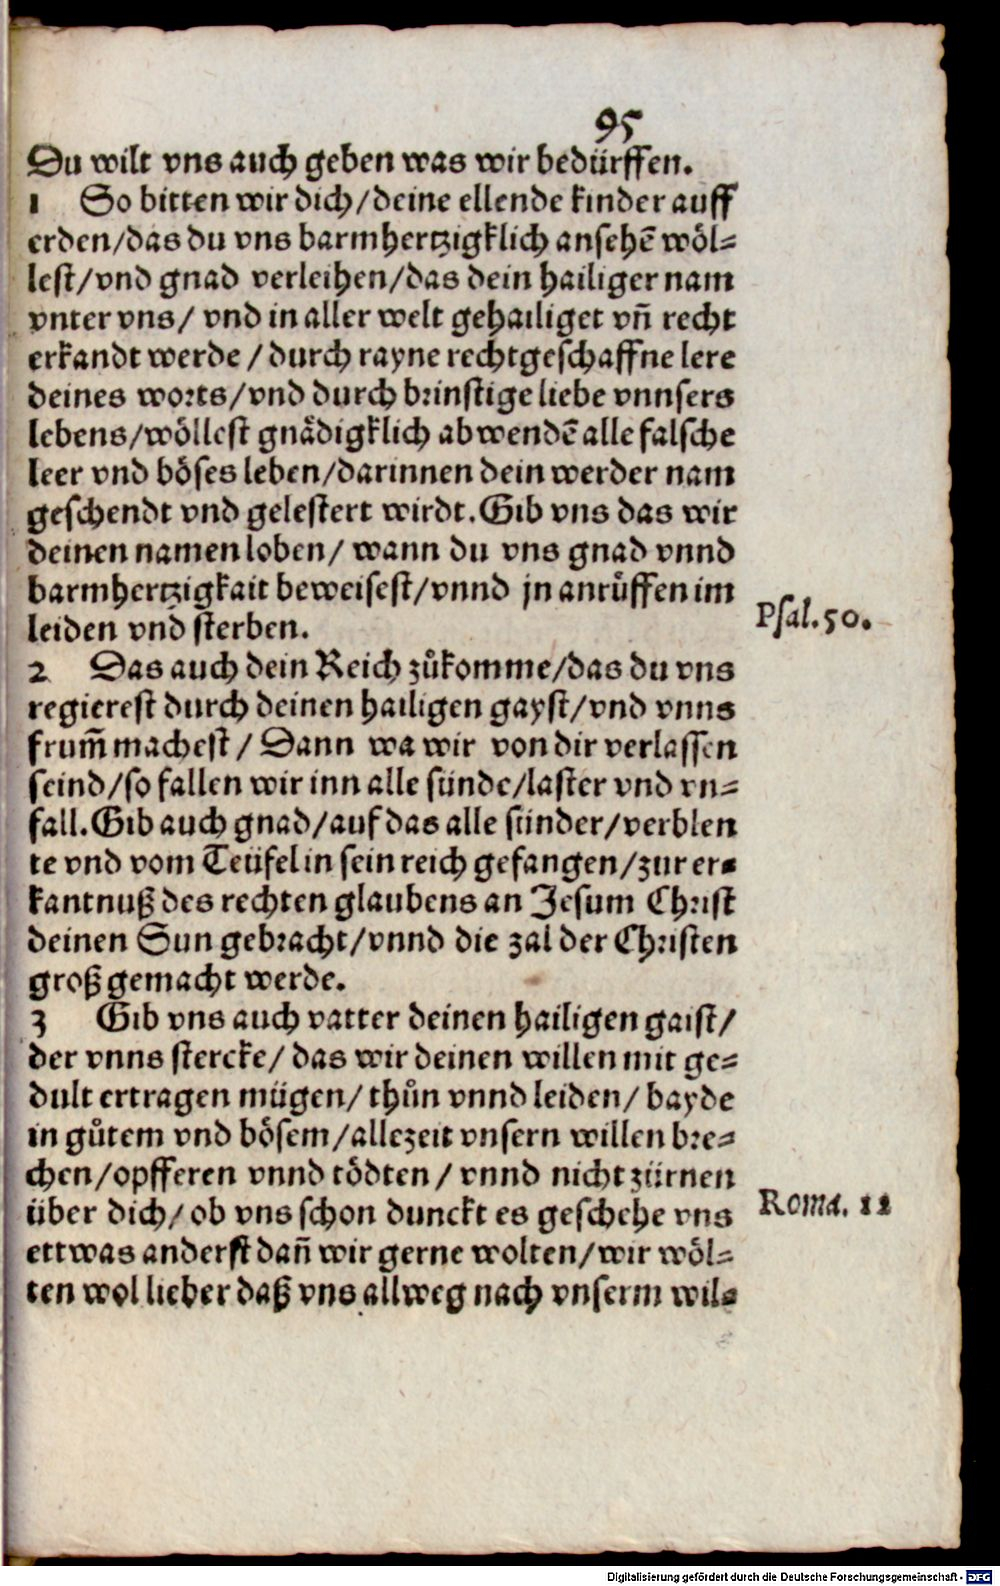 95
Du wilt vns auch geben was wir bedürffen.
1 So bitten wir dich/deine ellende kinder auff
erden/das du vns barmhertzigklich ansehē wöl=
lest/vnd gnad verleihen/das dein hailiger nam
vnter vns/ vnd in aller welt gehailiget vñ recht
erkandt werde/durch rayne rechtgeschaffne lere
deines worts/vnd durch brinstige liebe vnnsers
lebens/wöllest gnädigklich abwendē alle falsche
leer vnd böses leben/darinnen dein werder nam
geschendt vnd gelestert wirdt.Gib vns das wir
deinen namen loben/ wann du vns gnad vnnd
barmhertzigkait beweisest/vnnd jn anrůffen im
leiden vnd sterben.
Psal.50.
2 Das auch dein Reich zůkomme/das du vns
regierest durch deinen hailigen gayst/vnd vnns
frum̄ machest/ Dann wa wir von dir verlassen
seind/so fallen wir inn alle sünde/laster vnd vn=
fall.Gib auch gnad/auf das alle sünder/verblen
te vnd vom Teüfel in sein reich gefangen/zur er=
kantnuß des rechten glaubens an Jesum Christ
deinen Sun gebracht/vnnd die zal der Christen
groß gemacht werde.
3 Gib vns auch vatter deinen hailigen gaist/
der vnns stercke/ das wir deinen willen mit ge=
dult ertragen mügen/ thůn vnnd leiden/ bayde
in gůtem vnd bösem/allezeit vnsern willen bre=
chen/opfferen vnnd tödten/ vnnd nicht zürnen
über dich/ ob vns schon dunckt es geschehe vns
Roma. 12
ettwas anderst dañ wir gerne wolten/wir wöl=
ten wol lieber daß vns allweg nach vnserm wil=
Digitalisierung gefördert durch die Deutsche Forschungsgemeinschaft - DFG